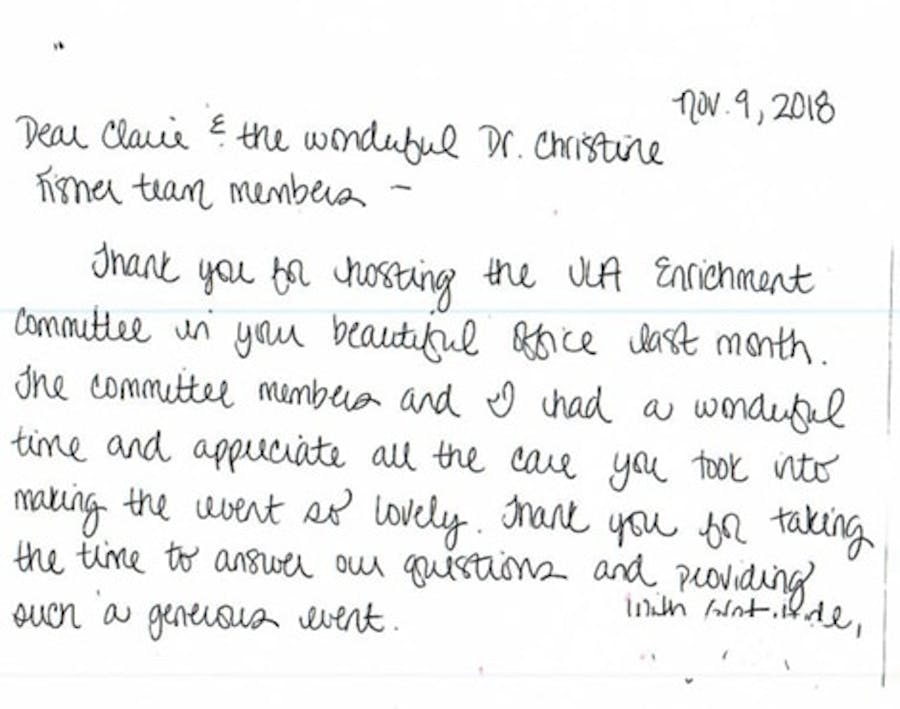 Nov. 9, 2018
Dear Claire & the wonderful Dr. Christine
Fisher team members –
Thank you for hosting the VLA Enrichment
Committee in your beautiful office last month.
The committee members and I had a wonderful
time and appreciate all the care you took into
making the event so lovely. Thank you for taking
the time to answer our questions and providing
such a generous event.
With gratitude,